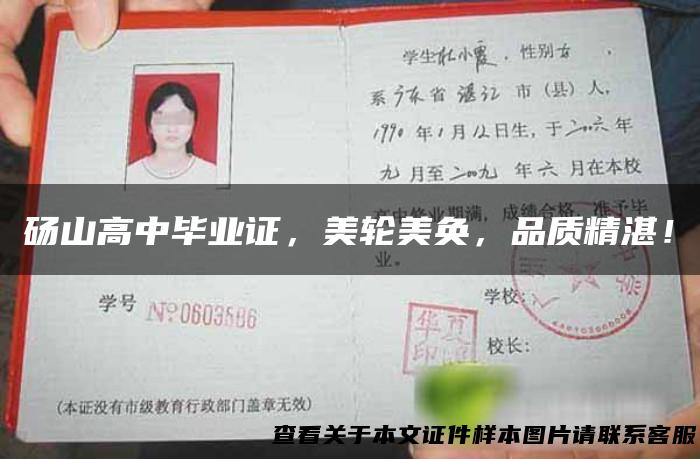 学生杜小霞,性别女,
系广东省湛江市(县)人,
1990年1月12日生,于二00六年
九月至二00九年六月在本校
高中毕业期满,成绩合格,准予毕
业。
砀山高中毕业证，美轮美奂，品质精湛！
学号 №0603586
学校:
华夏
校长:
(本证没有市级教育行政部门盖章无效)
查看关于本文证件样本图片请联系客服